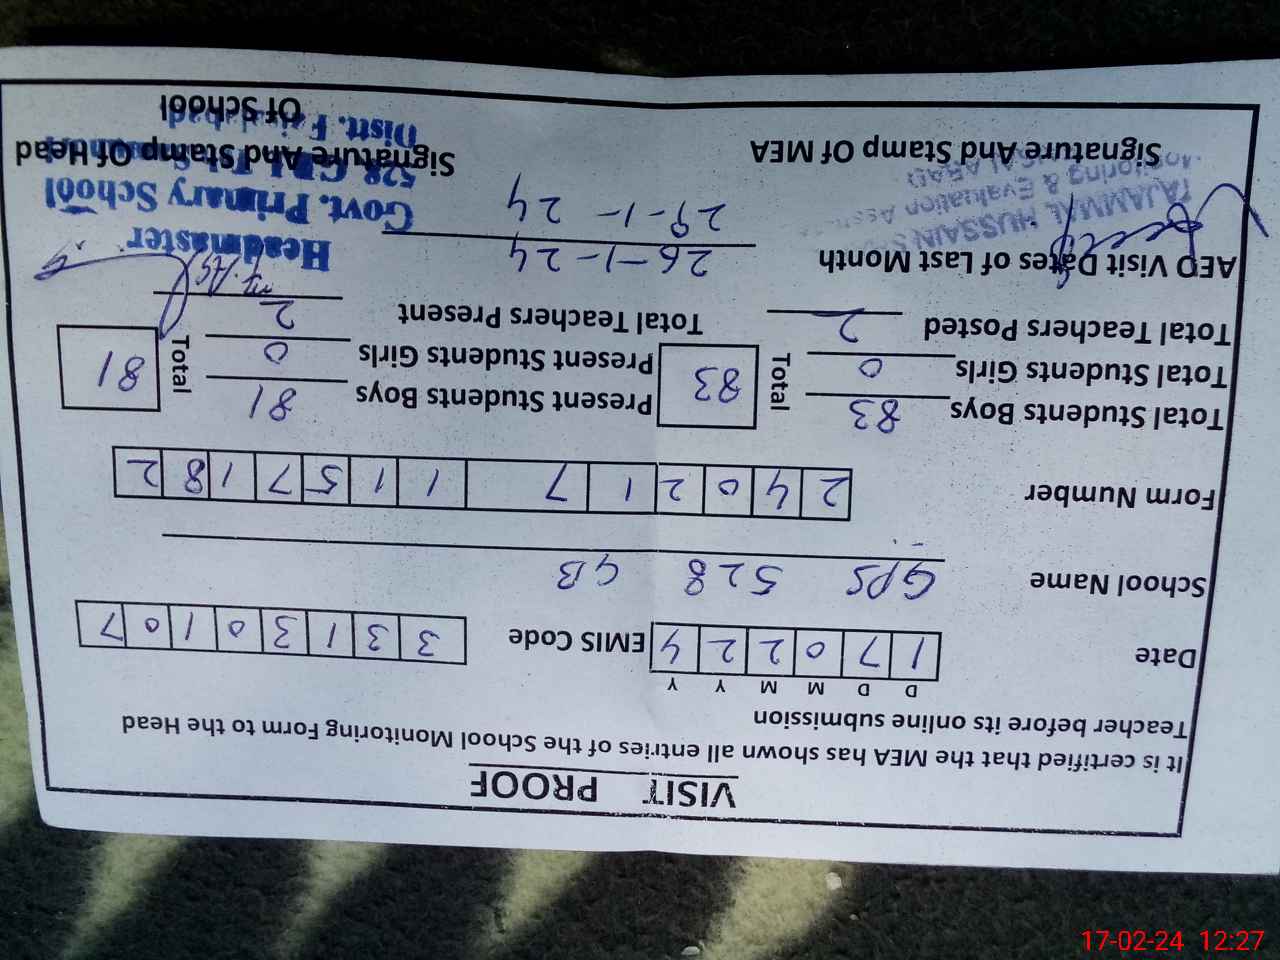 VISIT PROOF
It is certified that the MEA has shown all entries of the School Monitoring Form to the Head
Teacher before its online submission
D D M M Y Y
Date 1 7 0 2 2 4 EMIS Code 3 3 1 3 0 1 0 7
School Name GPS 528 GB
Form Number 2 4 0 2 1 7 1 1 5 7 1 8 2
Total Students Boys 83 Total 83 Present Students Boys 81 Total 81
Total Students Girls 0 Present Students Girls 0
Total Teachers Posted 2 Total Teachers Present 2
AEO Visit Dates of Last Month 26-1-24
29-1-24
TAJAMMAL HUSSAIN
Monitoring & Evaluation
Headmaster
Govt. Primary School
528
Distt. Faisalabad
Signature And Stamp Of MEA Signature And Stamp Of Head
Of School
17-02-24 12:27